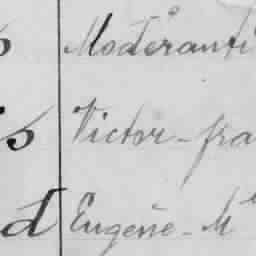 Moderanti
s Victor-fra
d Eugène-M